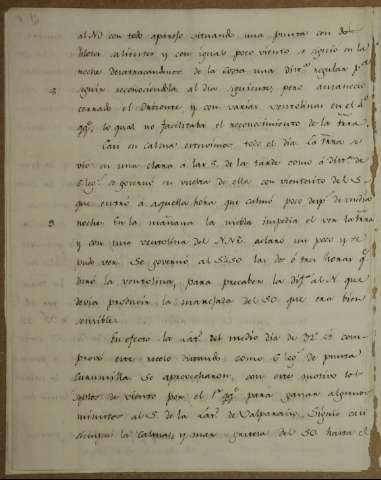 al NO con todo aparejo situando una punta con dos
islotes salientes y con igual poco viento se siguió en la
noche desatracandonos de la costa una dist.ª regular p.ª
seguir reconociendola al dia siguiente, pero amaneció
8 cerrado el Oriente y con varias ventolinas en el
lo qual no facilitaba el reconocimiento de la tierra.
Casi en calma estuvimos todo el dia la tierra se
vio en una clara a las 5 de la tarde como á dist.ª de
6 leg.s se governó en vuelta de ella con vientecito del S
que entró a aquella hora que calmó poco desp.s de media
9 noche. En la mañana la niebla impedia el ver la tierra
y con una ventolina del NNE aclaró un poco y se
pudo ver. Se governó al las dos ó tres horas q.e
duró la ventolina, para precaber la al N que
devia producir la marejada del SO que era bien
sensible.
En efecto la lat.d del medio dia de comprobó
este recelo distando como 6 leg.s de punta
Curaumilla. Se aprovecharon con este motivo los
de viento por el para ganar algunos
minutos al S. de la lat.d de Valparaiso. Siguio casi
siempre la calma, y mar gruesa del SO hasta el